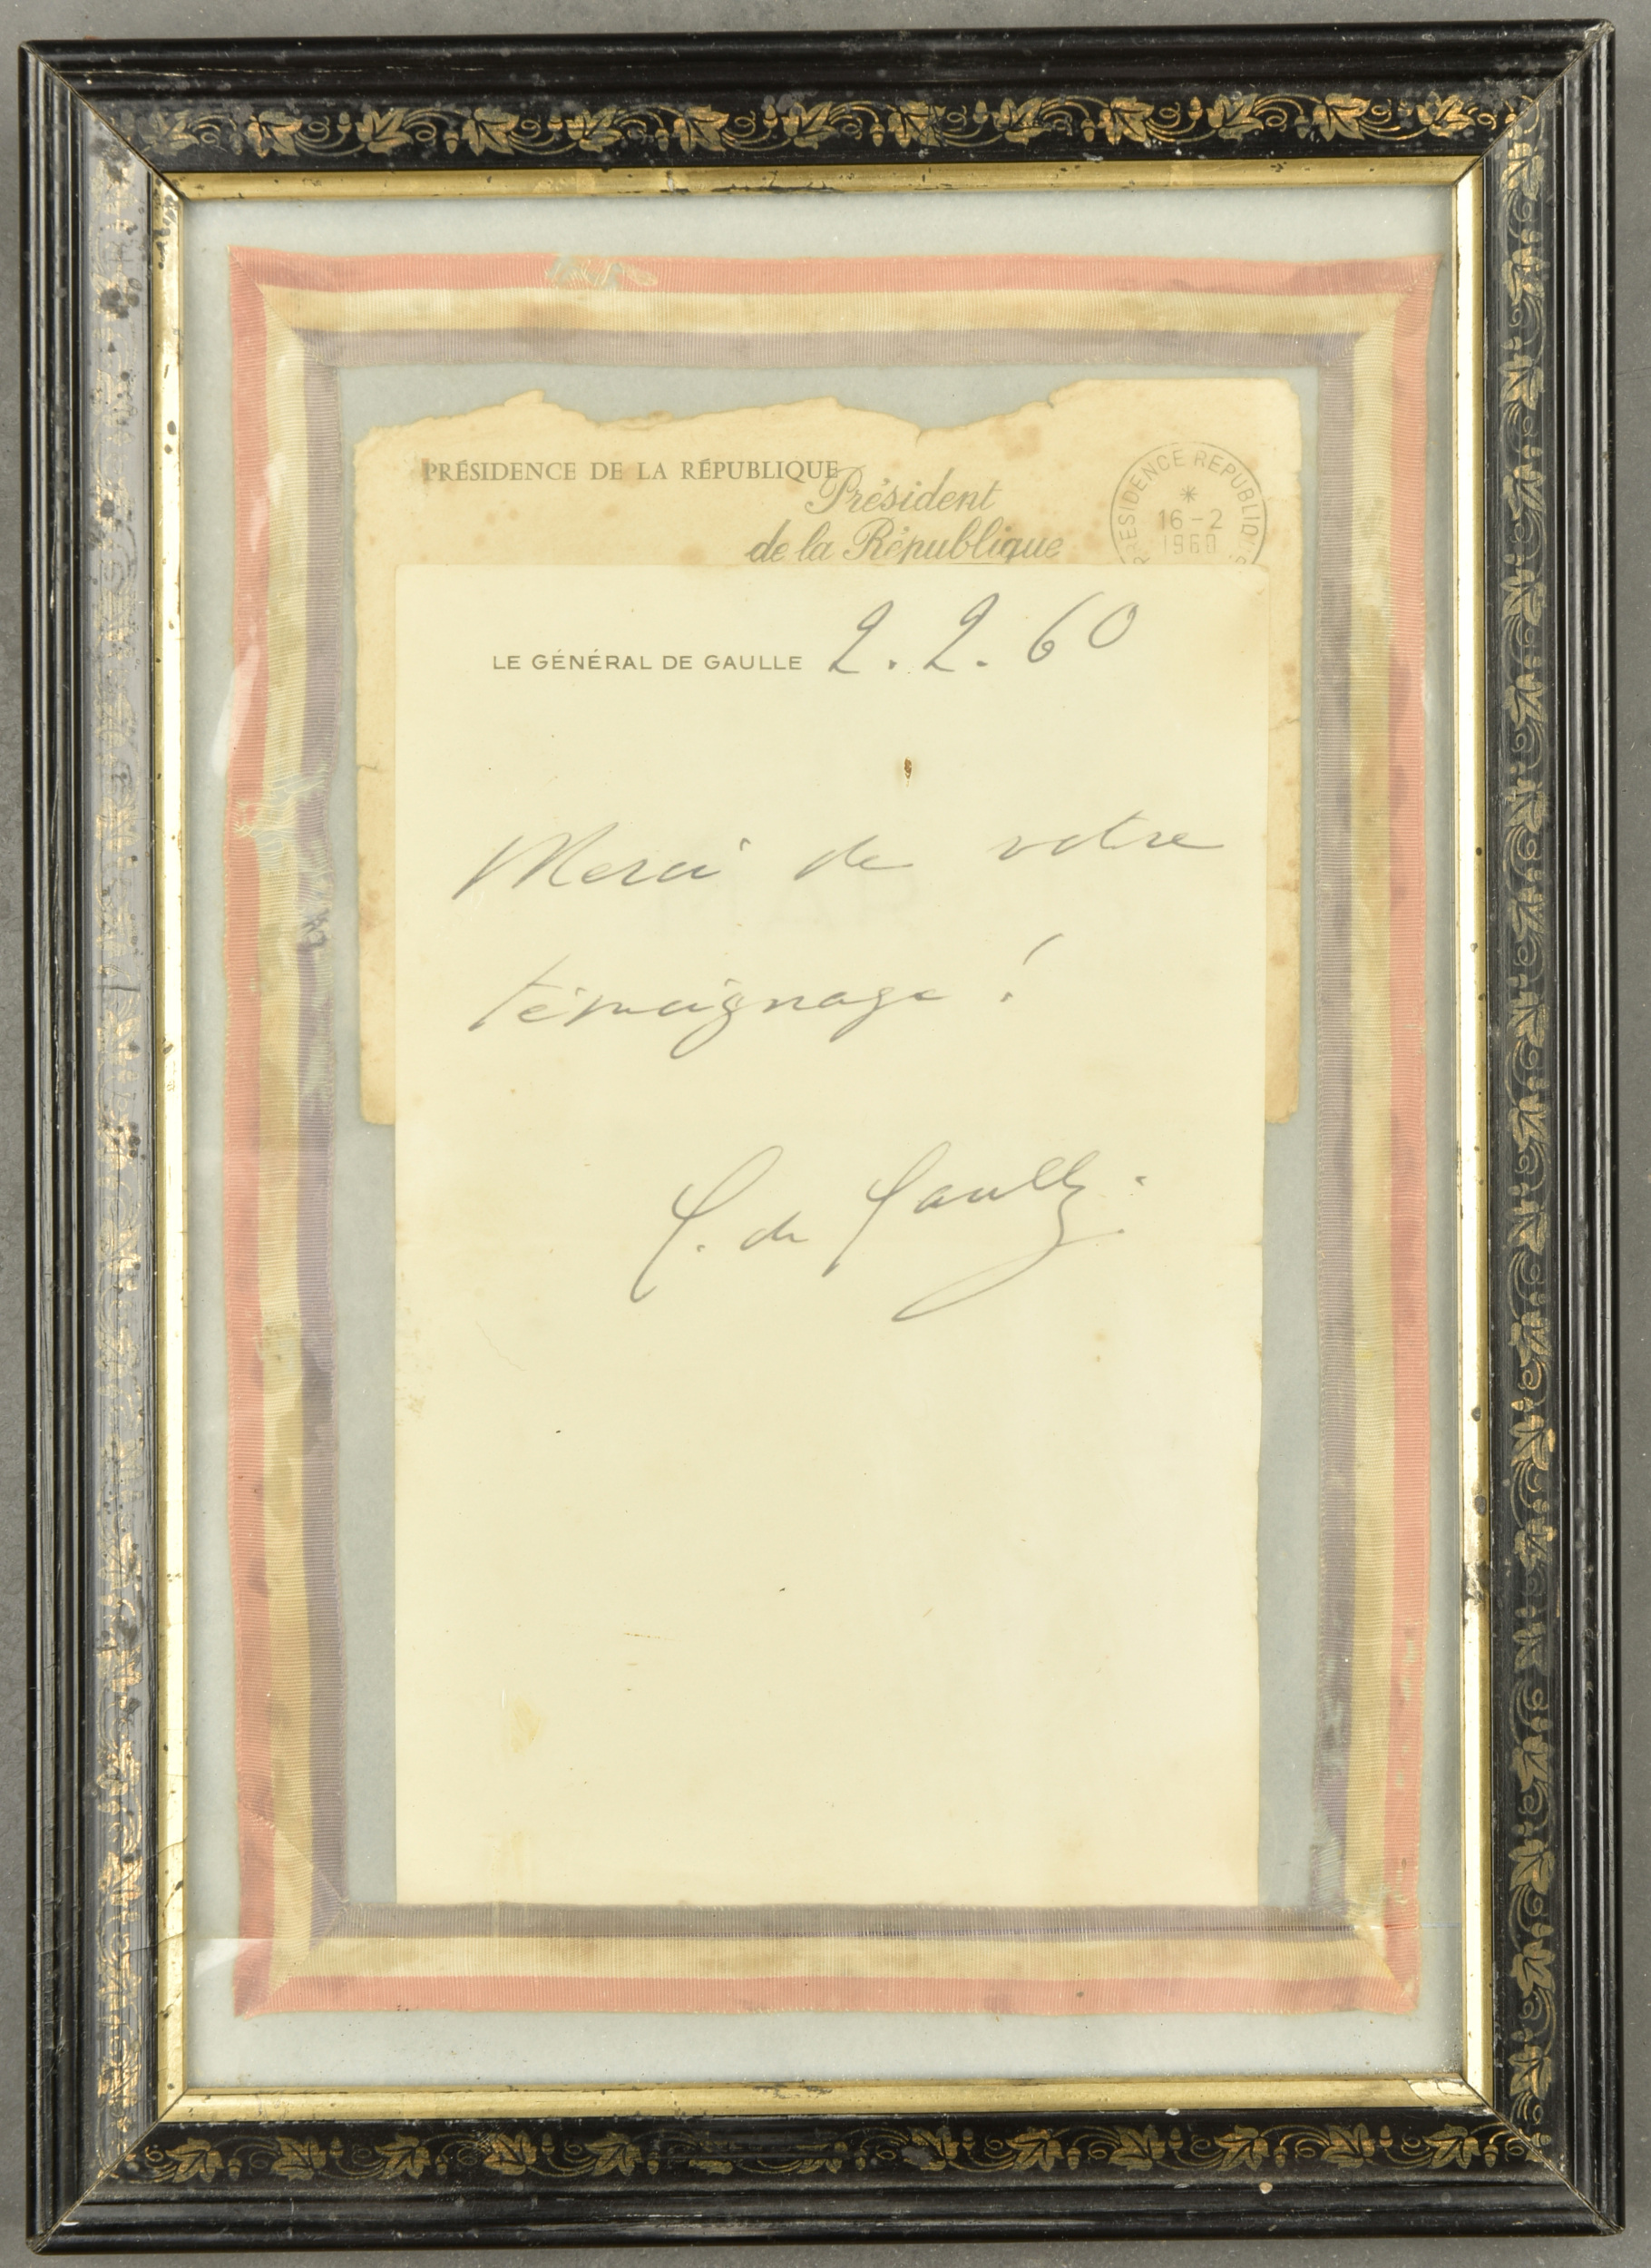 PRÉSIDENCE DE LA RÉPUBLIQUE
Président
de la République
PRESIDENCE REPUBLIQUE
16-2
1960
LE GÉNÉRAL DE GAULLE 2.2.60
Merci de votre
témoignage !
C. de Gaulle.